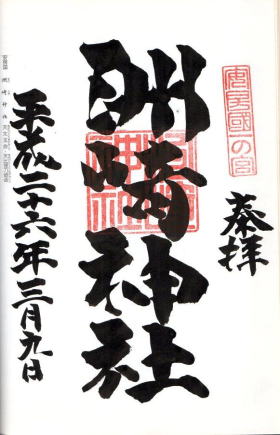 奉拝
安房國一の宮
洲崎神社
平成二十六年三月九日